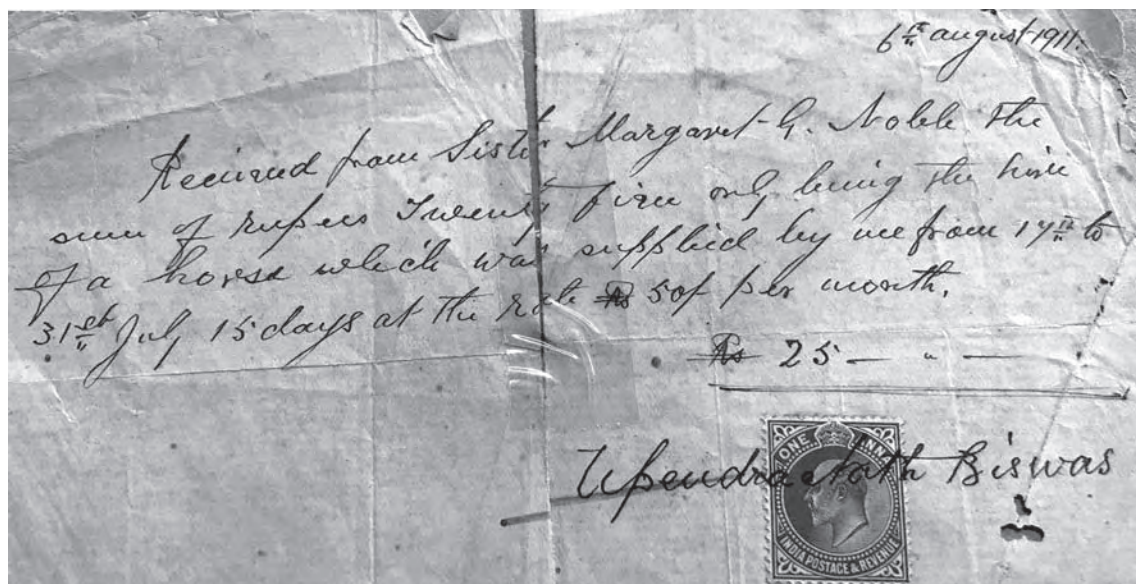 6th august 1911.
Received from Sister Margaret G. Noble the
sum of rupees Twenty five only being the hire
of a horse which was supplied by me from 17th to
31st July 15 days at the rate Rs 50/ per month.
Rs 25 — " —
Upendra Nath Biswas
ONE ANNA
INDIA POSTAGE & REVENUE